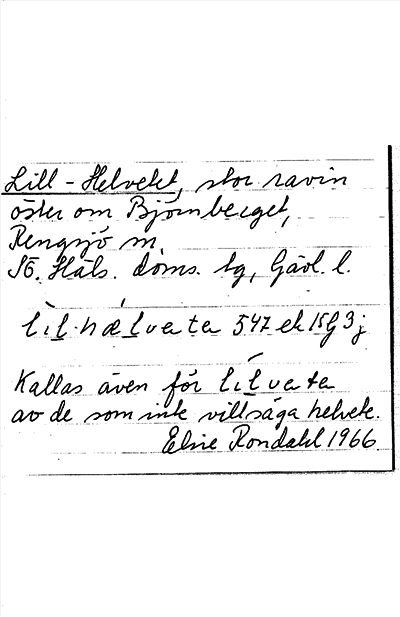 Lill-Helvetet, stor ravin
öster om Björnberget,
Rengsjö sn,
Sö. Häls. doms. tg, Gävl. l.
lìl·hælvata 547 ek 15G 3j
Kallas även för lilvata
av de som inte vill säga helvete.
Elsie Rondahl 1966.